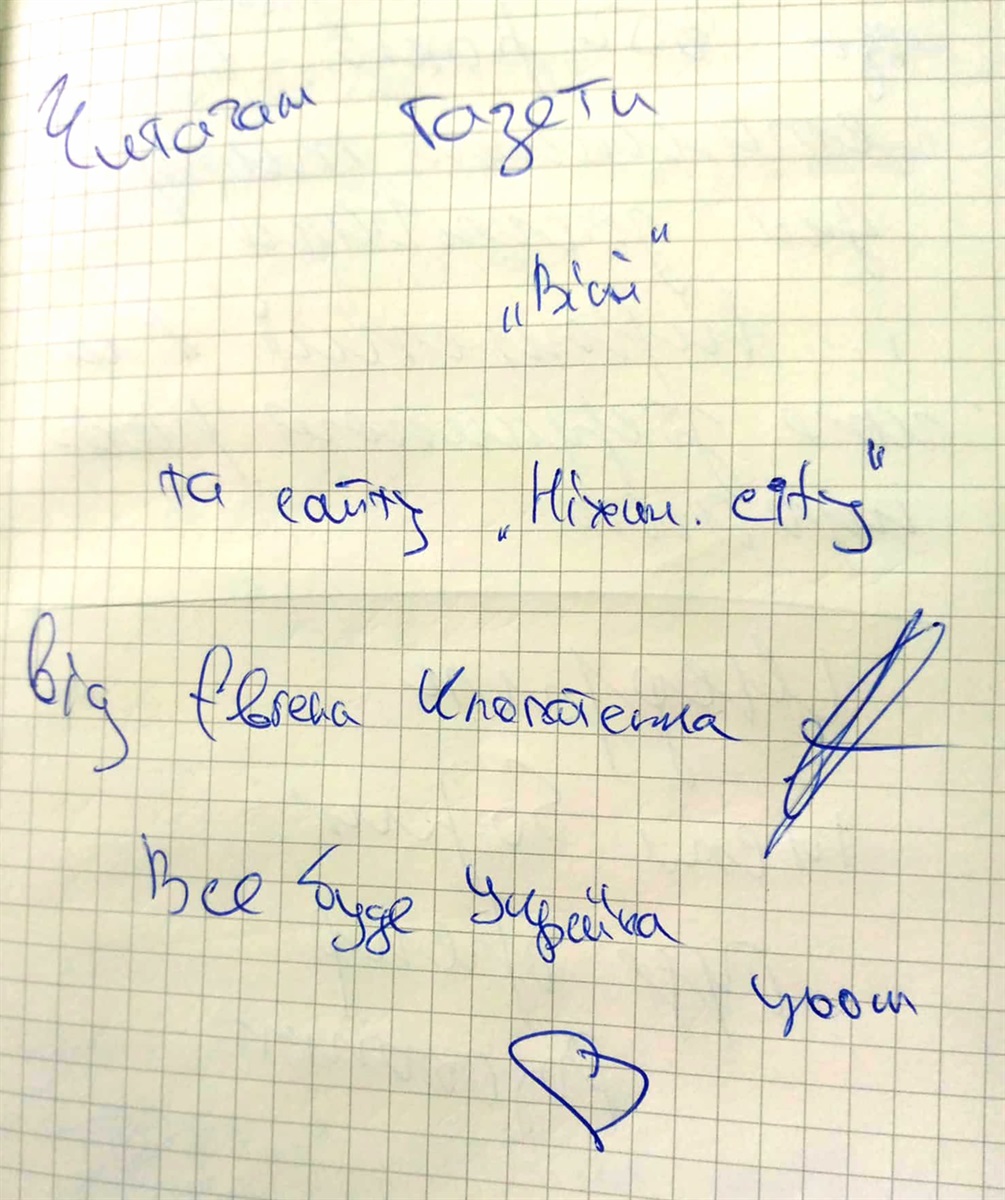 Читачам газети
„Вісті"
та сайту „Ніжин.city"
від Євгена Клопотенка
Все буде Україна